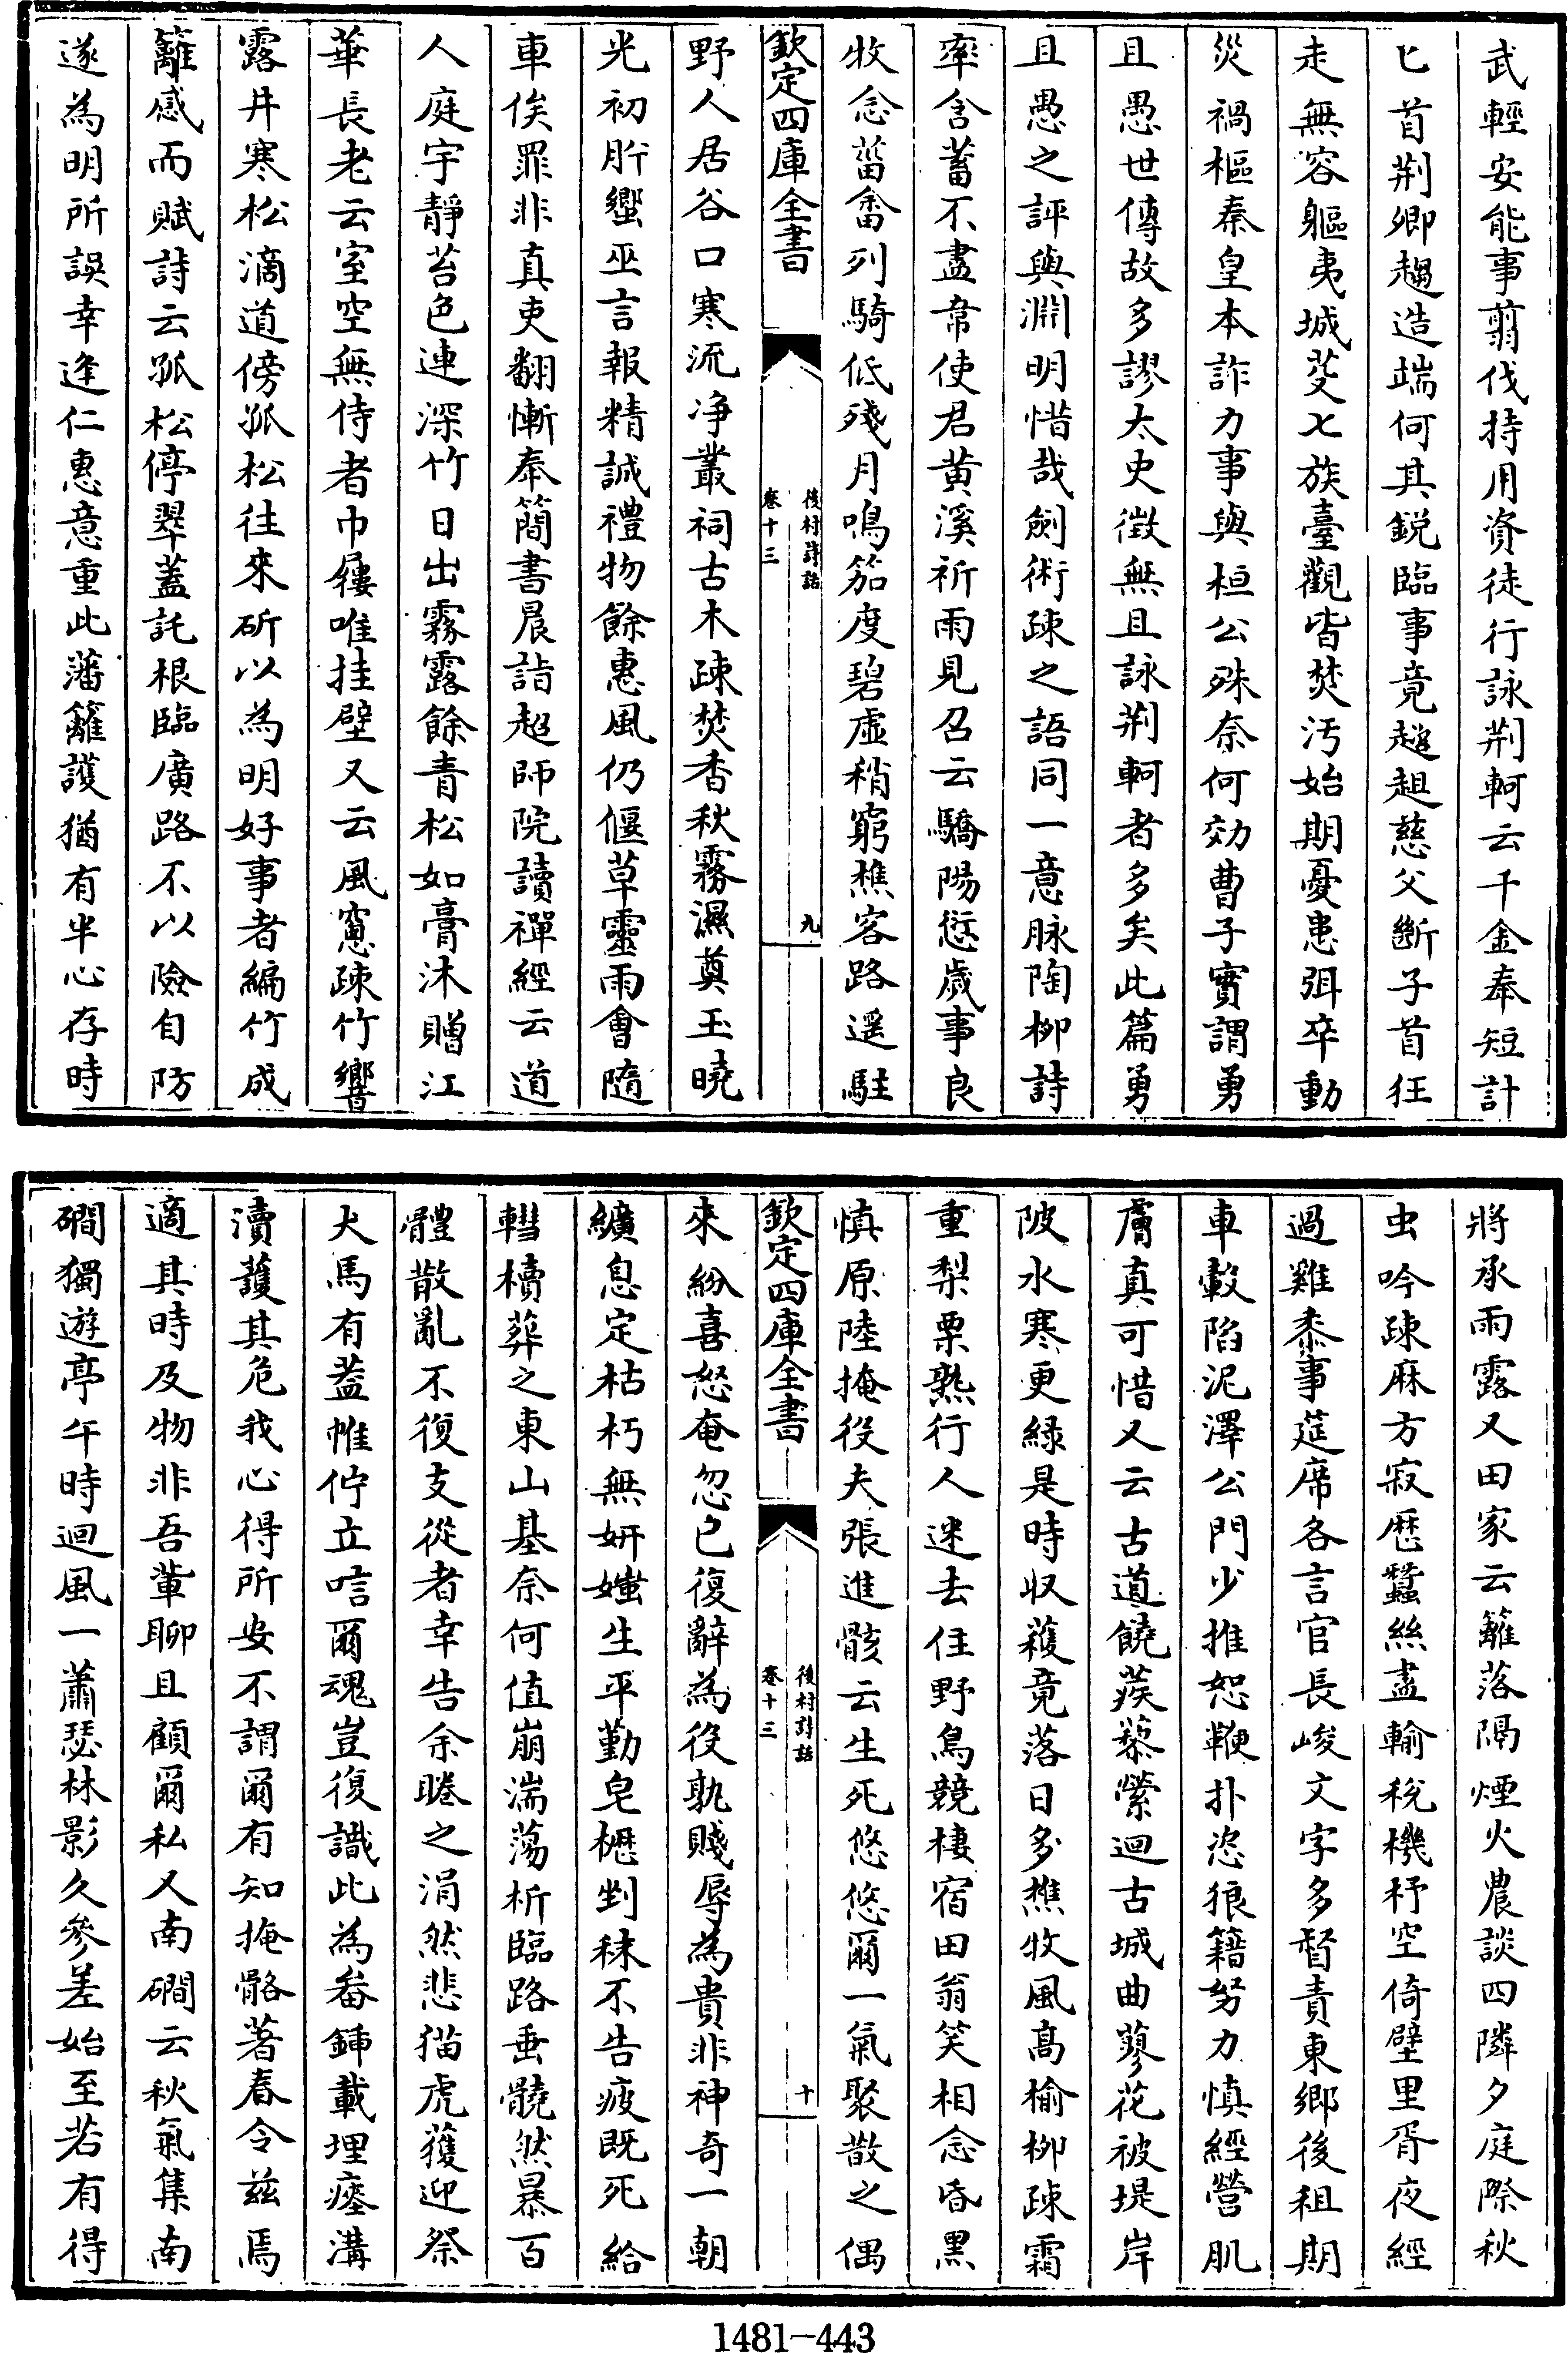 武輕安能事翦伐持用資徒行詠荆軻云千金奉短計
匕首荆卿趨造端何其鋭臨事竟趑趄慈父斷子首狂
走無容軀夷城芟七族臺觀皆焚汚始期憂患弭卒動
災禍樞秦皇本詐力事與桓公殊奈何効曹子實謂勇
且愚世傳故多謬太史徴無且詠荆軻者多矣此篇勇
且愚之評與淵明惜哉劍術疎之語同一意脉陶柳詩
率含蓄不盡韋使君黄溪祈雨見召云驕陽愆歲事良
牧念菑畬列騎低殘月鳴笳度碧虛稍窮樵客路遥駐
欽定四庫全書
後村詩話
卷十三
九
野人居谷口寒流净叢祠古木疎焚香秋霧濕奠玉曉
光初肸蠁巫言報精誠禮物餘惠風仍偃草靈雨會隨
車俟罪非真吏翻慚奉簡書晨詣超師院讀禪經云道
人庭宇靜苔色連深竹日出霧露餘青松如膏沐贈江
華長老云室空無侍者巾屨唯挂壁又云風窻疎竹響
露井寒松滴道傍孤松往來斫以為明好事者編竹成
籬感而賦詩云孤松停翠蓋託根臨廣路不以險自防
遂為明所誤幸逢仁惠意重此藩籬護猶有半心存時
將承雨露又田家云籬落隔煙火農談四隣夕庭際秋
虫吟疎麻方寂歴蠶絲盡輸稅機杼空倚壁里胥夜經
過雞黍事筵席各言官長峻文字多督責東鄉後租期
車轂陷泥澤公門少推恕鞭扑恣狼籍努力慎經營肌
膚真可惜又云古道饒蒺藜縈迴古城曲蓼花被堤岸
陂水寒更緑是時收穫竟落日多樵牧風高榆柳疎霜
重梨栗熟行人迷去住野鳥競棲宿田翁笑相念昏黑
慎原陸掩役夫張進骸云生死悠悠爾一氣聚散之偶
欽定四庫全書
後村詩話
卷十三
十
來紛喜怒奄忽已復辭為役孰賤辱為貴非神奇一朝
纊息定枯朽無妍媸生平勤皂櫪剉秣不告疲既死給
轊櫝葬之東山基奈何值崩湍蕩析臨路垂髐然暴百
體散亂不復支從者幸告余睠之涓然悲猫虎獲迎祭
犬馬有葢帷佇立唁爾魂豈復識此為畚鍤載埋瘞溝
瀆護其危我心得所安不謂爾有知掩骼著春令兹焉
適其時及物非吾輩聊且顧爾私又南磵云秋氣集南
磵獨遊亭午時迴風一蕭瑟林影久參差始至若有得
1481-443